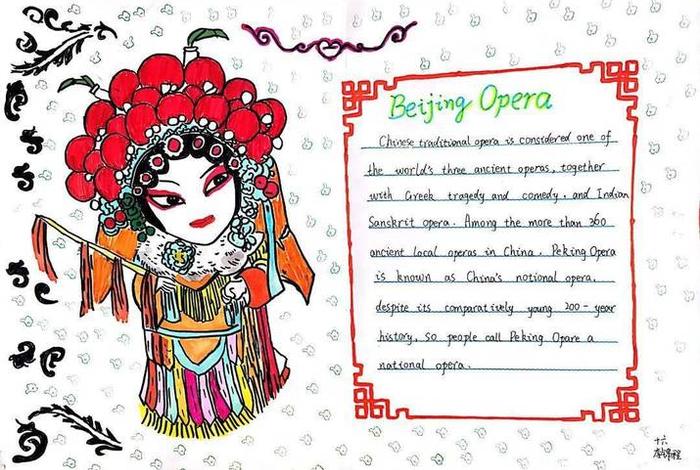 Beijing Opera
Chinese traditional opera is considered one of
the world's three ancient operas, together
with Greek tragedy and comedy, and Indian
Sanskrit opera. Among the more than 360
ancient local operas in China. Peking Opera
is known as China's notional opera.
despite its comparatively young 200-year
history, so people call Peking Opare a
national opera.
十六